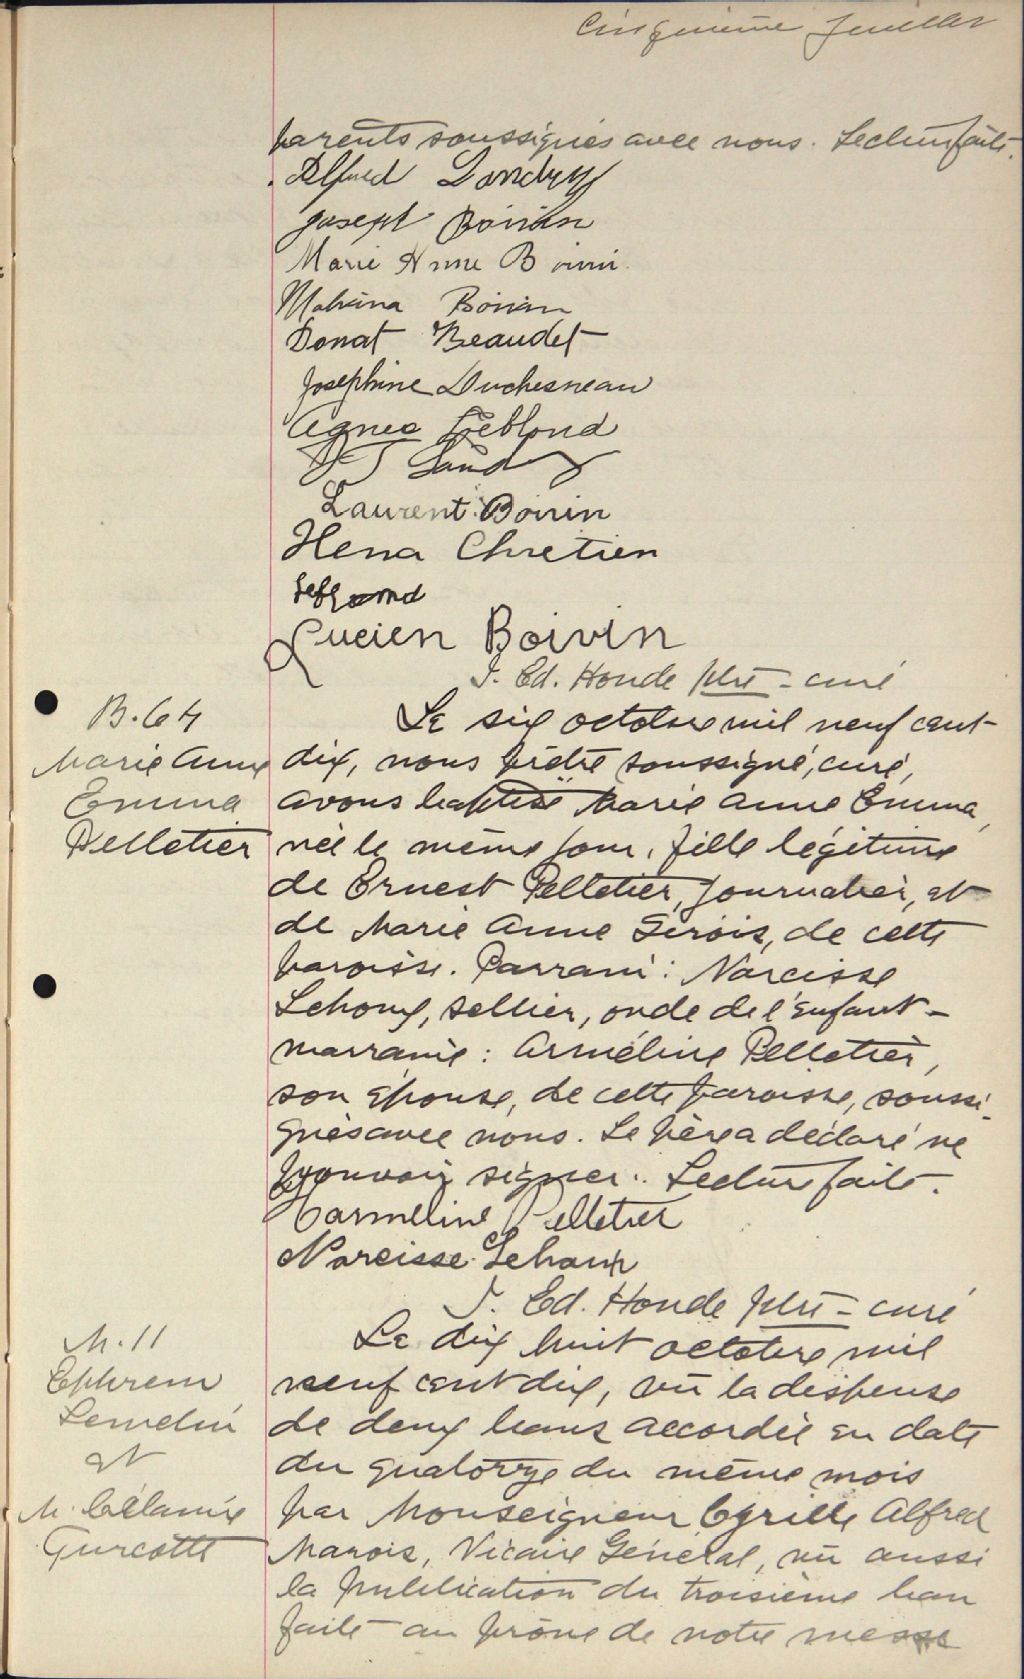 Cinquième feuillet
parents soussignés avec nous. Lecture faite.
Alfred Landry
Joseph Boivin
Marie Anne Boivin
Malvina Boivin
Donat Beaudet
Joséphine Duchesneau
Agnes Leblond
Landry
Laurent Boivin
Hena Chretien
Leblond
Lucien Boivin
J. Ed. Houde ptre - curé
B. 64
Marie Anne
Emma
Pelletier
Le six octobre mil neuf cent
dix, nous prêtre soussigné, curé,
avons baptisé Marie Anne Emma,
née le même jour, fille légitime
de Ernest Pelletier, journalier, et
de Marie Anne Sirois, de cette
paroisse. Parrain: Narcisse
Lehoux, sellier, oncle de l'enfant -
marraine: Arméline Pelletier,
son épouse, de cette paroisse, soussi-
gnés avec nous. Le père a déclaré ne
pouvoir signer. Lecture faite.
Carmeline Pelletier
Narcisse Lehoux
J. Ed. Houde ptre - curé
M. 11
Ephrem
Lemelin
et
M. Célanire
Turcotte
Le dix huit octobre mil
neuf cent dix, vu la dispense
de deux bans accordée en date
du quatorze du même mois
par Monseigneur Cyrille Alfred
Marois, Vicaire Général, vu aussi
la publication du troisième ban
faite au prône de notre messe